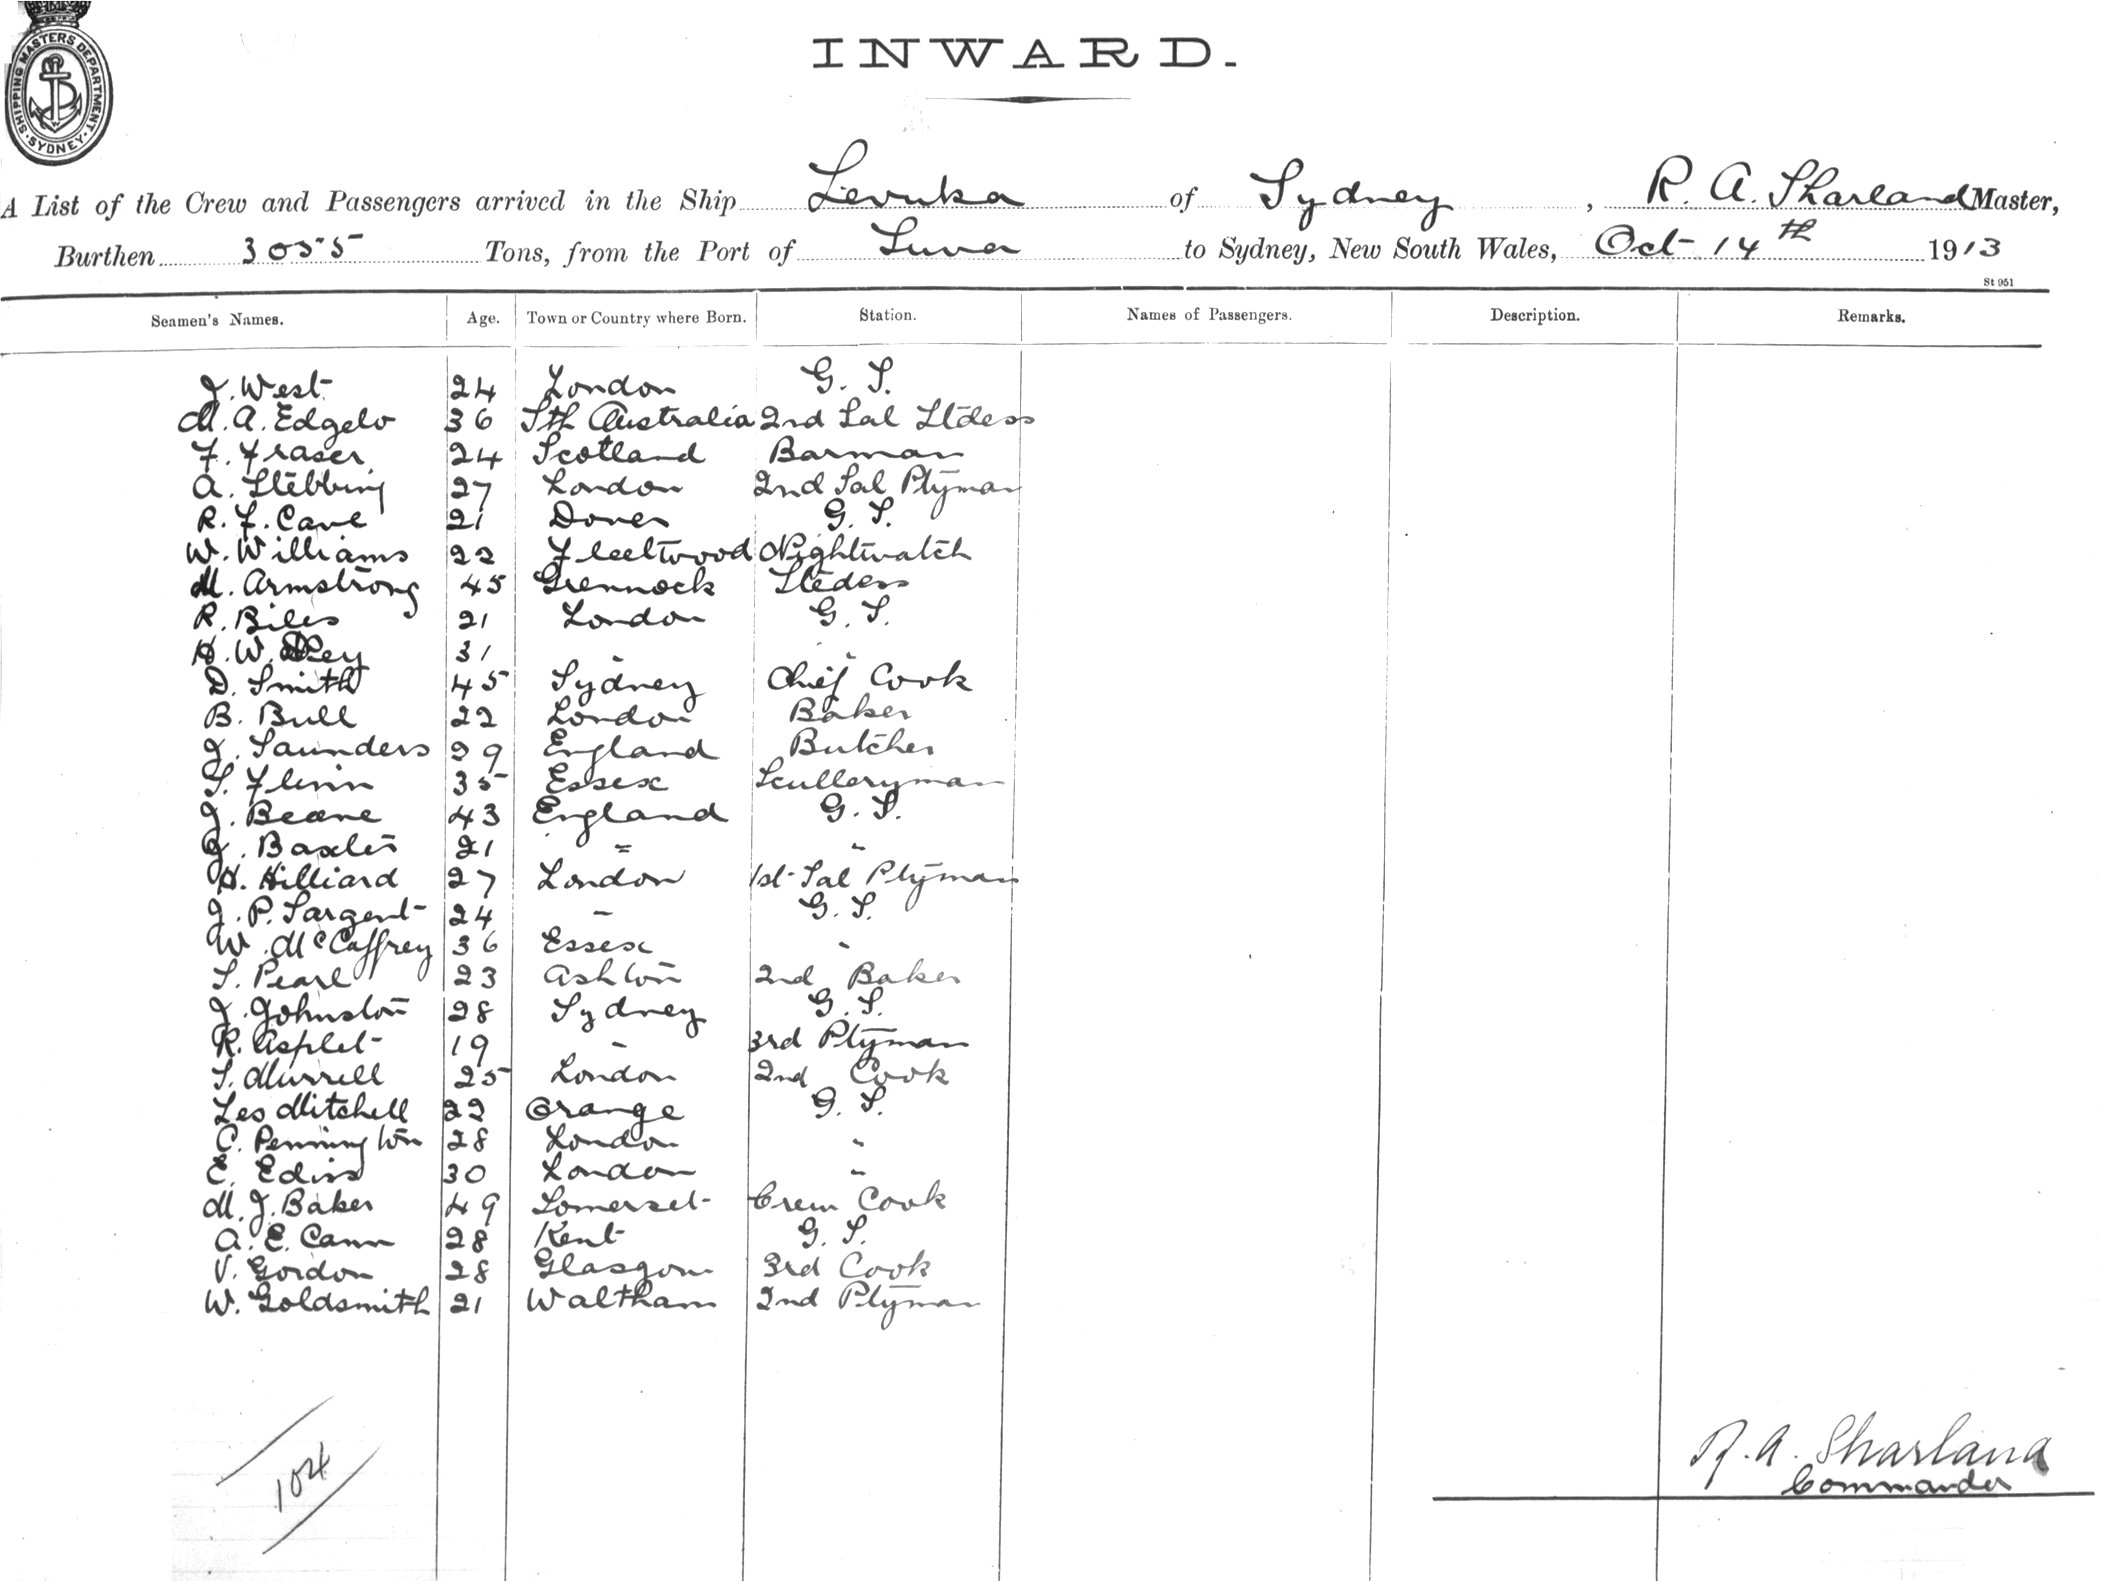 SHIPPING MASTERS DEPARTMENT
SYDNEY
INWARD.
A List of the Crew and Passengers arrived in the Ship Levuka of Sydney, R. A. Sharland Master,
Burthen 3055 Tons, from the Port of Suva to Sydney, New South Wales, Oct 14th 1913
St 951
Seamen's Names. Age. Town or Country where Born. Station. Names of Passengers. Description. Remarks.
J. West 24 London G. S.
M. A. Edgelo 36 Sth Australia 2nd Sal Stdess
F. Fraser 24 Scotland Barman
A. Stebbing 27 London 2nd Sal Ptyman
R. F. Cave 21 Dover G. S.
W. Williams 22 Fleetwood Nightwatch
M. Armstrong 45 Grennock Stedess
R. Biles 21 London G. S.
H. W. 31 " "
D. Smith 45 Sydney Chief Cook
B. Bull 22 London Baker
J. Saunders 29 England Butcher
S. Flinn 35 Essex Sculleryman
J. Beane 43 England G. S.
Baxter 21 " "
H. Hilliard 27 London 1st Sal Ptyman
J. P. Sargent 24 " G. S.
W. McCaffrey 36 Essex "
S. Pearl 23 Ashton 2nd Baker
J. Johnston 28 Sydney G. S.
R. Asplet 19 " 3rd Ptyman
S. Murrell 25 London 2nd Cook
Les Mitchell 22 Orange G. S.
C. Pennington 28 London "
E. Edins 30 London "
M. J. Baker 49 Somerset Crew Cook
A. E. Cann 28 Kent G. S.
V. Gordon 28 Glasgow 3rd Cook
W. Goldsmith 21 Waltham 2nd Ptyman
104
R. A. Sharland
Commander